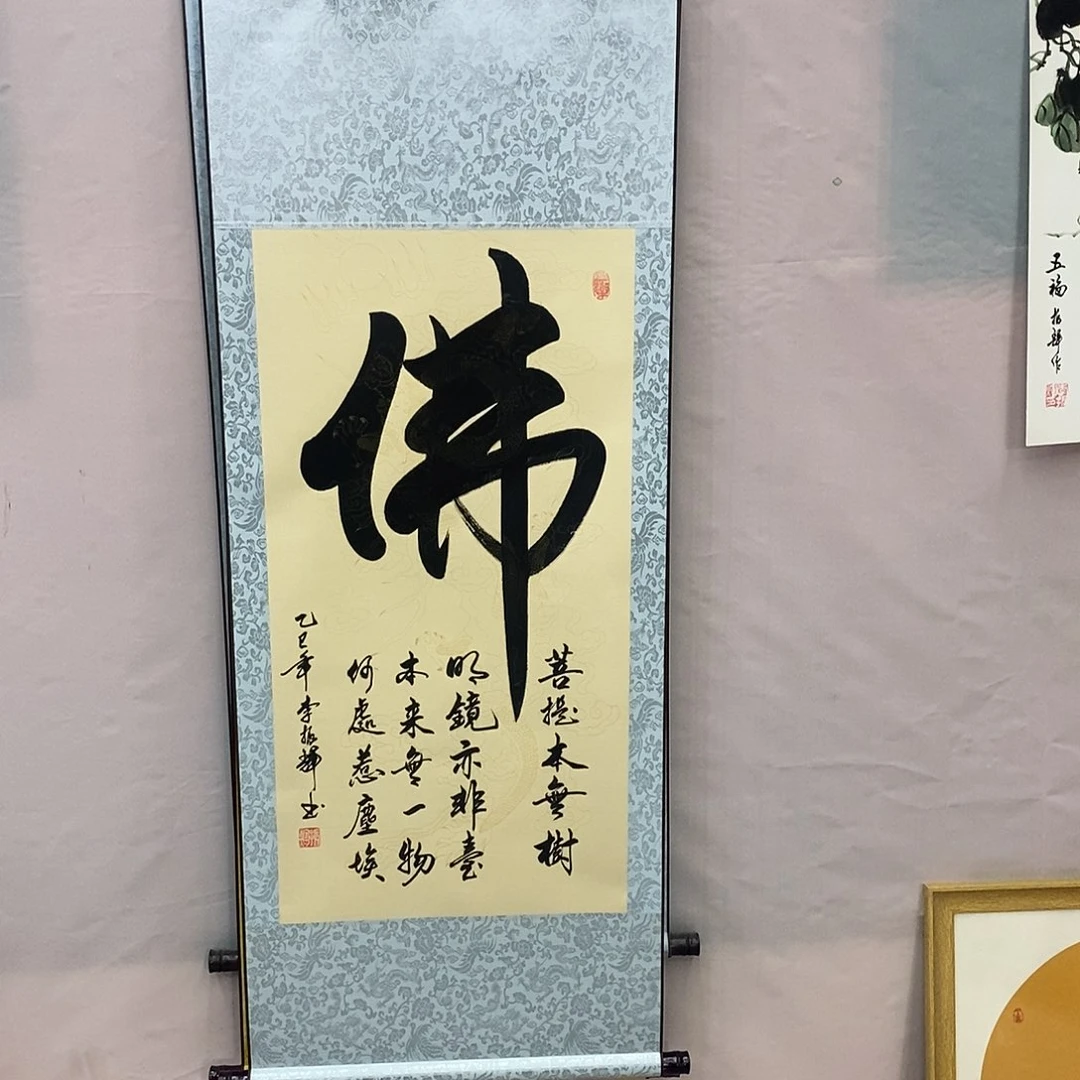 佛
菩提本無樹
明鏡亦非臺
本来無一物
何處惹塵埃
乙巳年 李振輝书
五福 振輝作